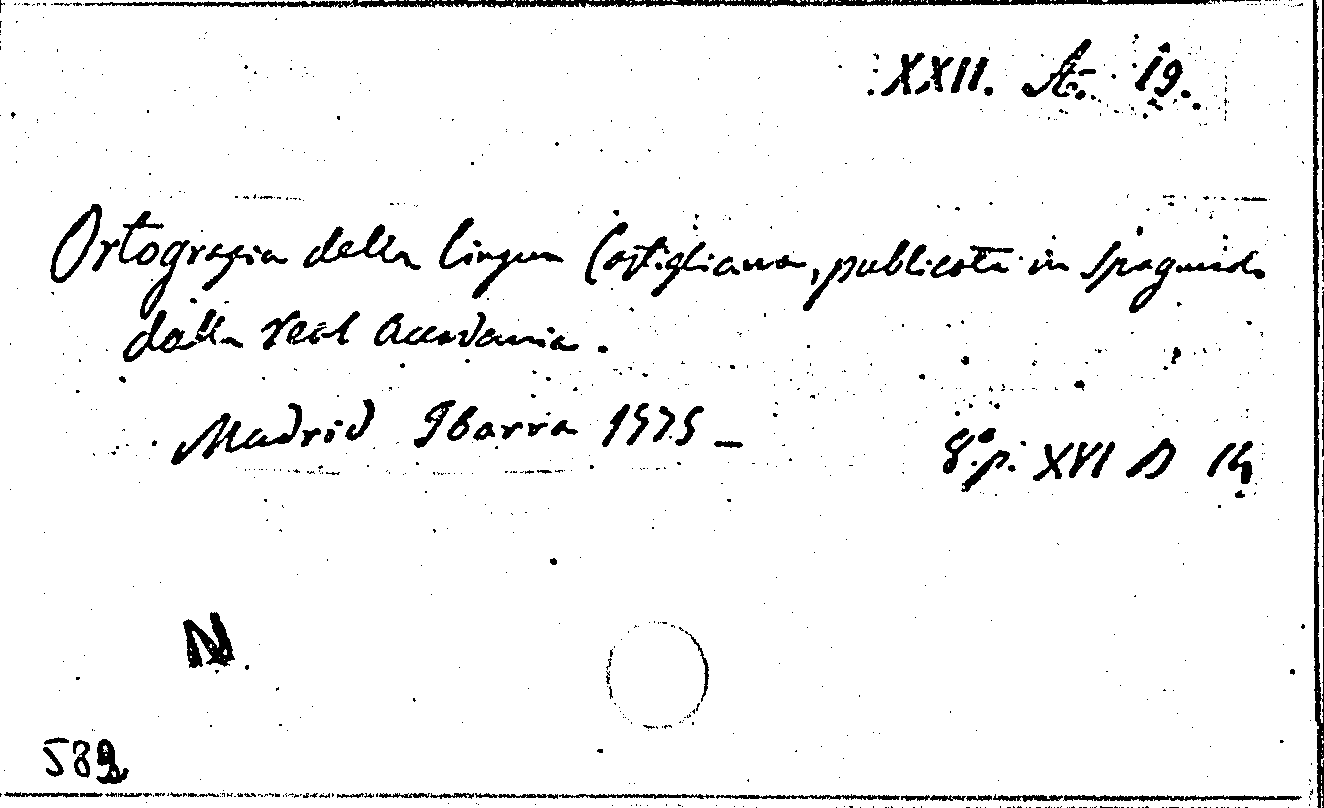 XXII. A. 19.
Ortografia della lingua Castigliana, publicata in Spagnuolo
dalla real Accademia.
Madrid Ibarra 1575 _ 8.º p. XVI D 14
N
589